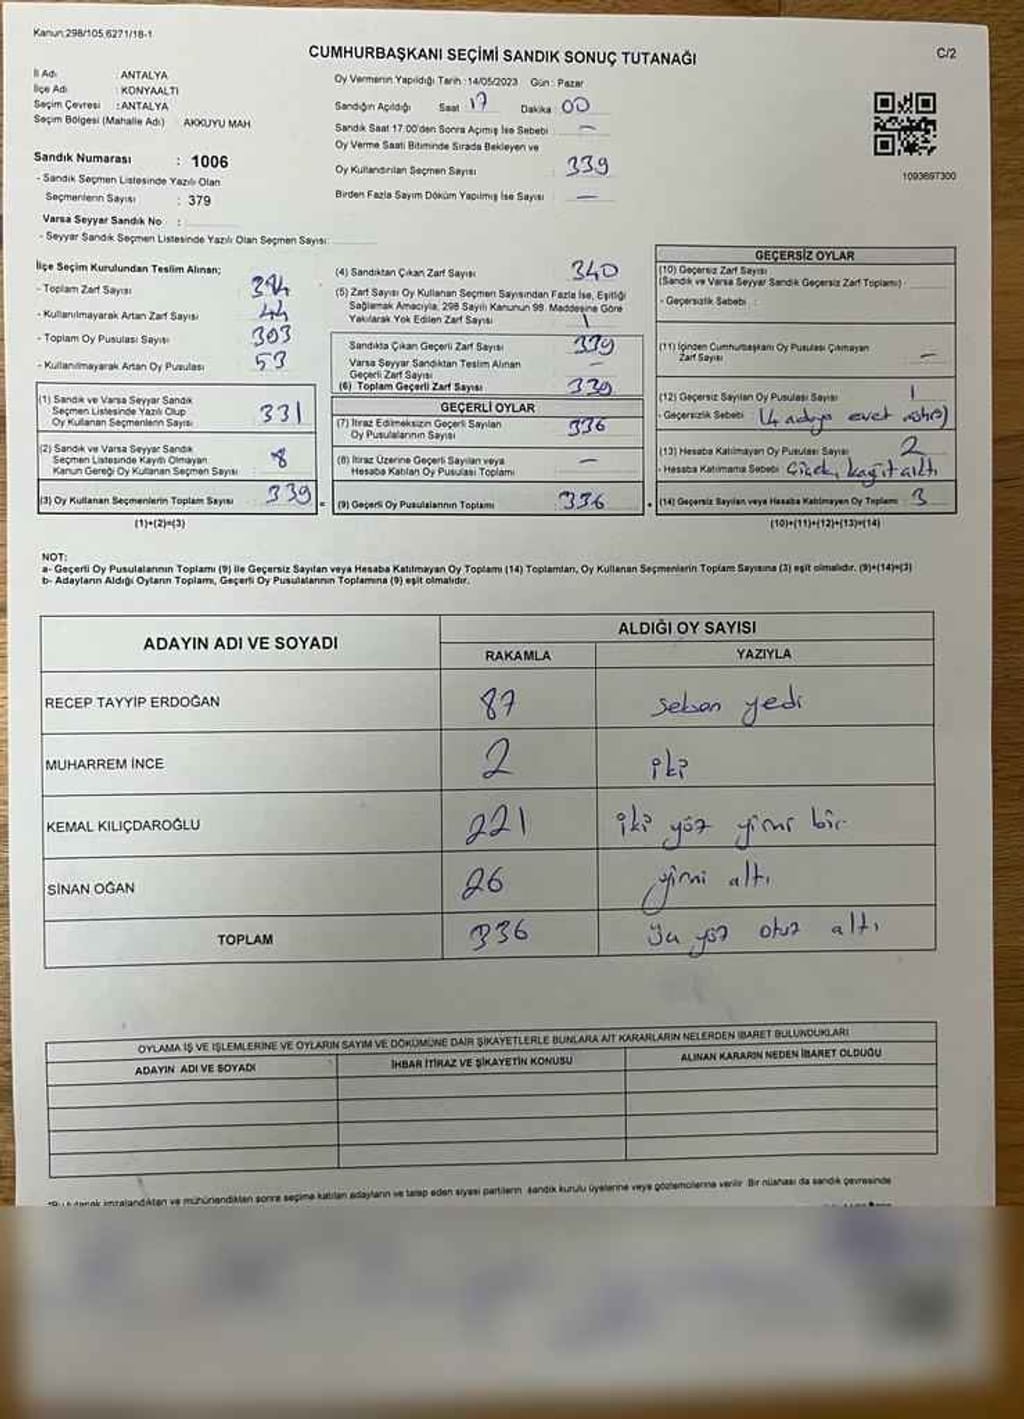 Kanun:298/105,6271/18-1
CUMHURBAŞKANI SEÇİMİ SANDIK SONUÇ TUTANAĞI
C/2
İl Adı : ANTALYA
İlçe Adı : KONYAALTI
Seçim Çevresi : ANTALYA
Seçim Bölgesi (Mahalle Adı) AKKUYU MAH
Sandık Numarası : 1006
- Sandık Seçmen Listesinde Yazılı Olan
Seçmenlerin Sayısı : 379
Varsa Seyyar Sandık No :
- Seyyar Sandık Seçmen Listesinde Yazılı Olan Seçmen Sayısı:
Oy Vermenin Yapıldığı Tarih : 14/05/2023 Gün : Pazar
Sandığın Açıldığı Saat 17 Dakika 00
Sandık Saat 17:00'den Sonra Açılmış İse Sebebi —
Oy Verme Saati Bitiminde Sırada Bekleyen ve
Oy Kullandırılan Seçmen Sayısı : 339
Birden Fazla Sayım Döküm Yapılmış İse Sayısı : —
1093697300
İlçe Seçim Kurulundan Teslim Alınan;
- Toplam Zarf Sayısı
- Kullanılmayarak Artan Zarf Sayısı 44
- Toplam Oy Pusulası Sayısı 303
- Kullanılmayarak Artan Oy Pusulası 53
(1) Sandık ve Varsa Seyyar Sandık
Seçmen Listesinde Yazılı Olup
Oy Kullanan Seçmenlerin Sayısı 331
(2) Sandık ve Varsa Seyyar Sandık
Seçmen Listesinde Kayıtlı Olmayan
Kanun Gereği Oy Kullanan Seçmen Sayısı 8
(3) Oy Kullanan Seçmenlerin Toplam Sayısı 339 =
(1)+(2)=(3)
(4) Sandıktan Çıkan Zarf Sayısı 340
(5) Zarf Sayısı Oy Kullanan Seçmen Sayısından Fazla İse, Eşitliği
Sağlamak Amacıyla, 298 Sayılı Kanunun 98. Maddesine Göre
Yakılarak Yok Edilen Zarf Sayısı 1
Sandıkta Çıkan Geçerli Zarf Sayısı 339
Varsa Seyyar Sandıktan Teslim Alınan
Geçerli Zarf Sayısı —
(6) Toplam Geçerli Zarf Sayısı 339
GEÇERLİ OYLAR
(7) İtiraz Edilmeksizin Geçerli Sayılan
Oy Pusulalarının Sayısı 336
(8) İtiraz Üzerine Geçerli Sayılan veya
Hesaba Katılan Oy Pusulası Toplamı —
(9) Geçerli Oy Pusulalarının Toplamı 336 +
GEÇERSİZ OYLAR
(10) Geçersiz Zarf Sayısı
(Sandık ve Varsa Seyyar Sandık Geçersiz Zarf Toplamı) :
- Geçersizlik Sebebi :
(11) İçinden Cumhurbaşkanı Oy Pusulası Çıkmayan
Zarf Sayısı —
(12) Geçersiz Sayılan Oy Pusulası Sayısı 1
- Geçersizlik Sebebi : (4 adaya evet
(13) Hesaba Katılmayan Oy Pusulası Sayısı 2
- Hesaba Katılmama Sebebi kağıt altı
(14) Geçersiz Sayılan veya Hesaba Katılmayan Oy Toplamı 3
(10)+(11)+(12)+(13)=(14)
NOT:
a- Geçerli Oy Pusulalarının Toplamı (9) ile Geçersiz Sayılan veya Hesaba Katılmayan Oy Toplamı (14) Toplamları, Oy Kullanan Seçmenlerin Toplam Sayısına (3) eşit olmalıdır. (9)+(14)=(3)
b- Adayların Aldığı Oyların Toplamı, Geçerli Oy Pusulalarının Toplamına (9) eşit olmalıdır.
ADAYIN ADI VE SOYADI ALDIĞI OY SAYISI
RAKAMLA YAZIYLA
RECEP TAYYİP ERDOĞAN 87 seksen yedi
MUHARREM İNCE 2 iki
KEMAL KILIÇDAROĞLU 221 iki yüz yirmi bir
SİNAN OĞAN 26 yirmi altı
TOPLAM 336 üç yüz otuz altı
OYLAMA İŞ VE İŞLEMLERİNE VE OYLARIN SAYIM VE DÖKÜMÜNE DAİR ŞİKAYETLERLE BUNLARA AİT KARARLARIN NELERDEN İBARET BULUNDUKLARI
ADAYIN ADI VE SOYADI İHBAR İTİRAZ VE ŞİKAYETİN KONUSU ALINAN KARARIN NEDEN İBARET OLDUĞU
imzalandıktan ve mühürlendikten sonra seçime katılan adayların ve talep eden siyasi partilerin sandık kurulu üyelerine veya gözlemcilerine verilir. Bir nüshası da sandık çevresinde